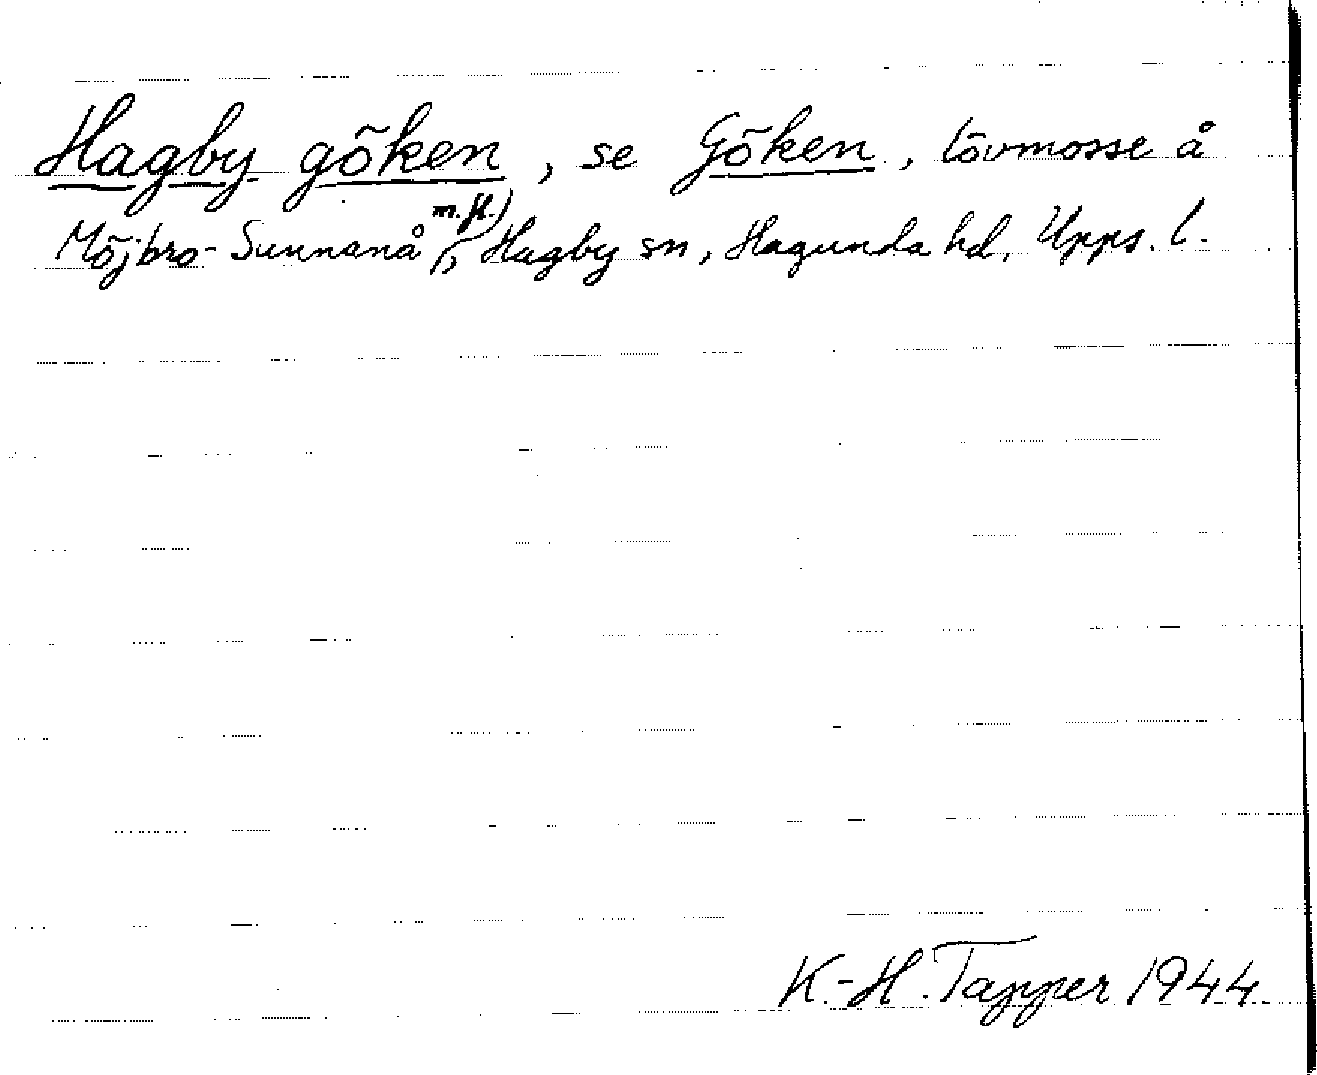 Hagby göken, se Göken, lövmosse å
Möjbro-Sunnanå (m.fl.), Hagby sn, Hagunda hd, Upps. l.
K.-H. Tapper 1944.